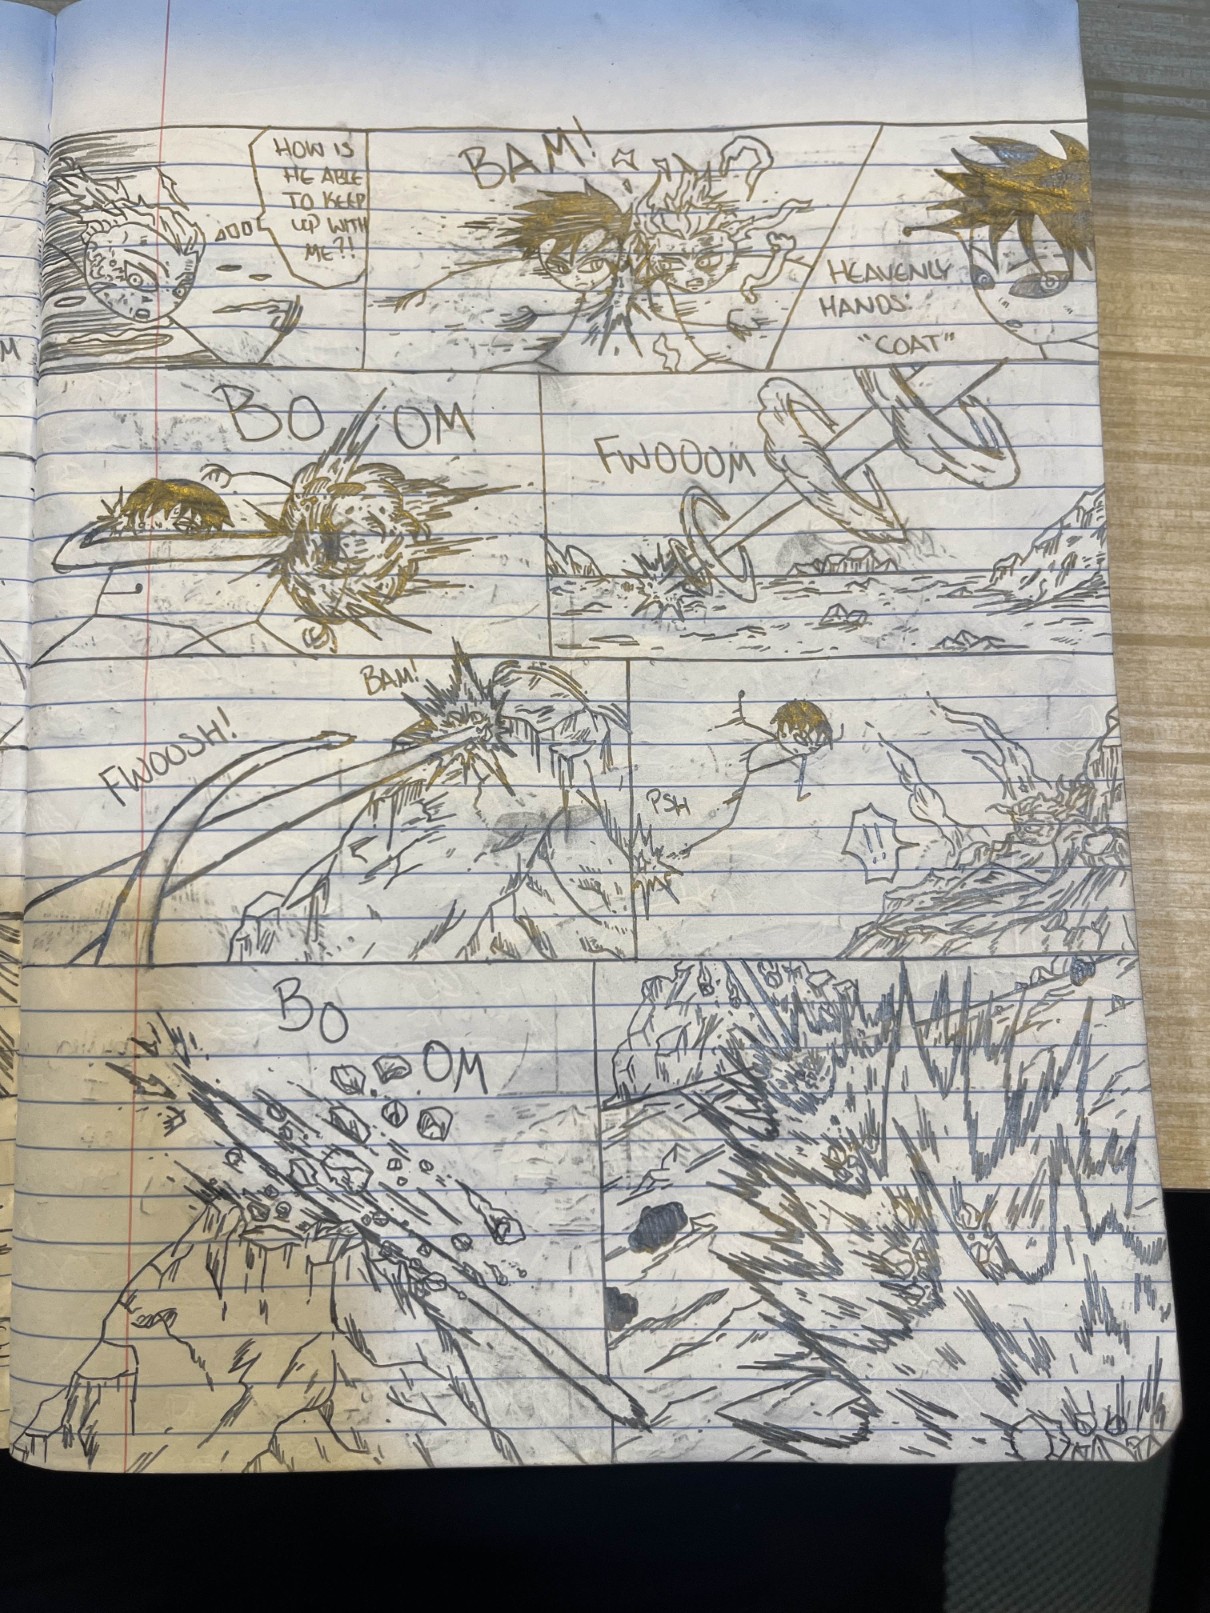 HOW IS
HE ABLE
TO KEEP
UP WITH
ME?!
BAM!
HEAVENLY
HANDS:
"COAT"
BO OM
FWOOOM
FWOOSH!
BAM!
PSH
!!
BO
OM